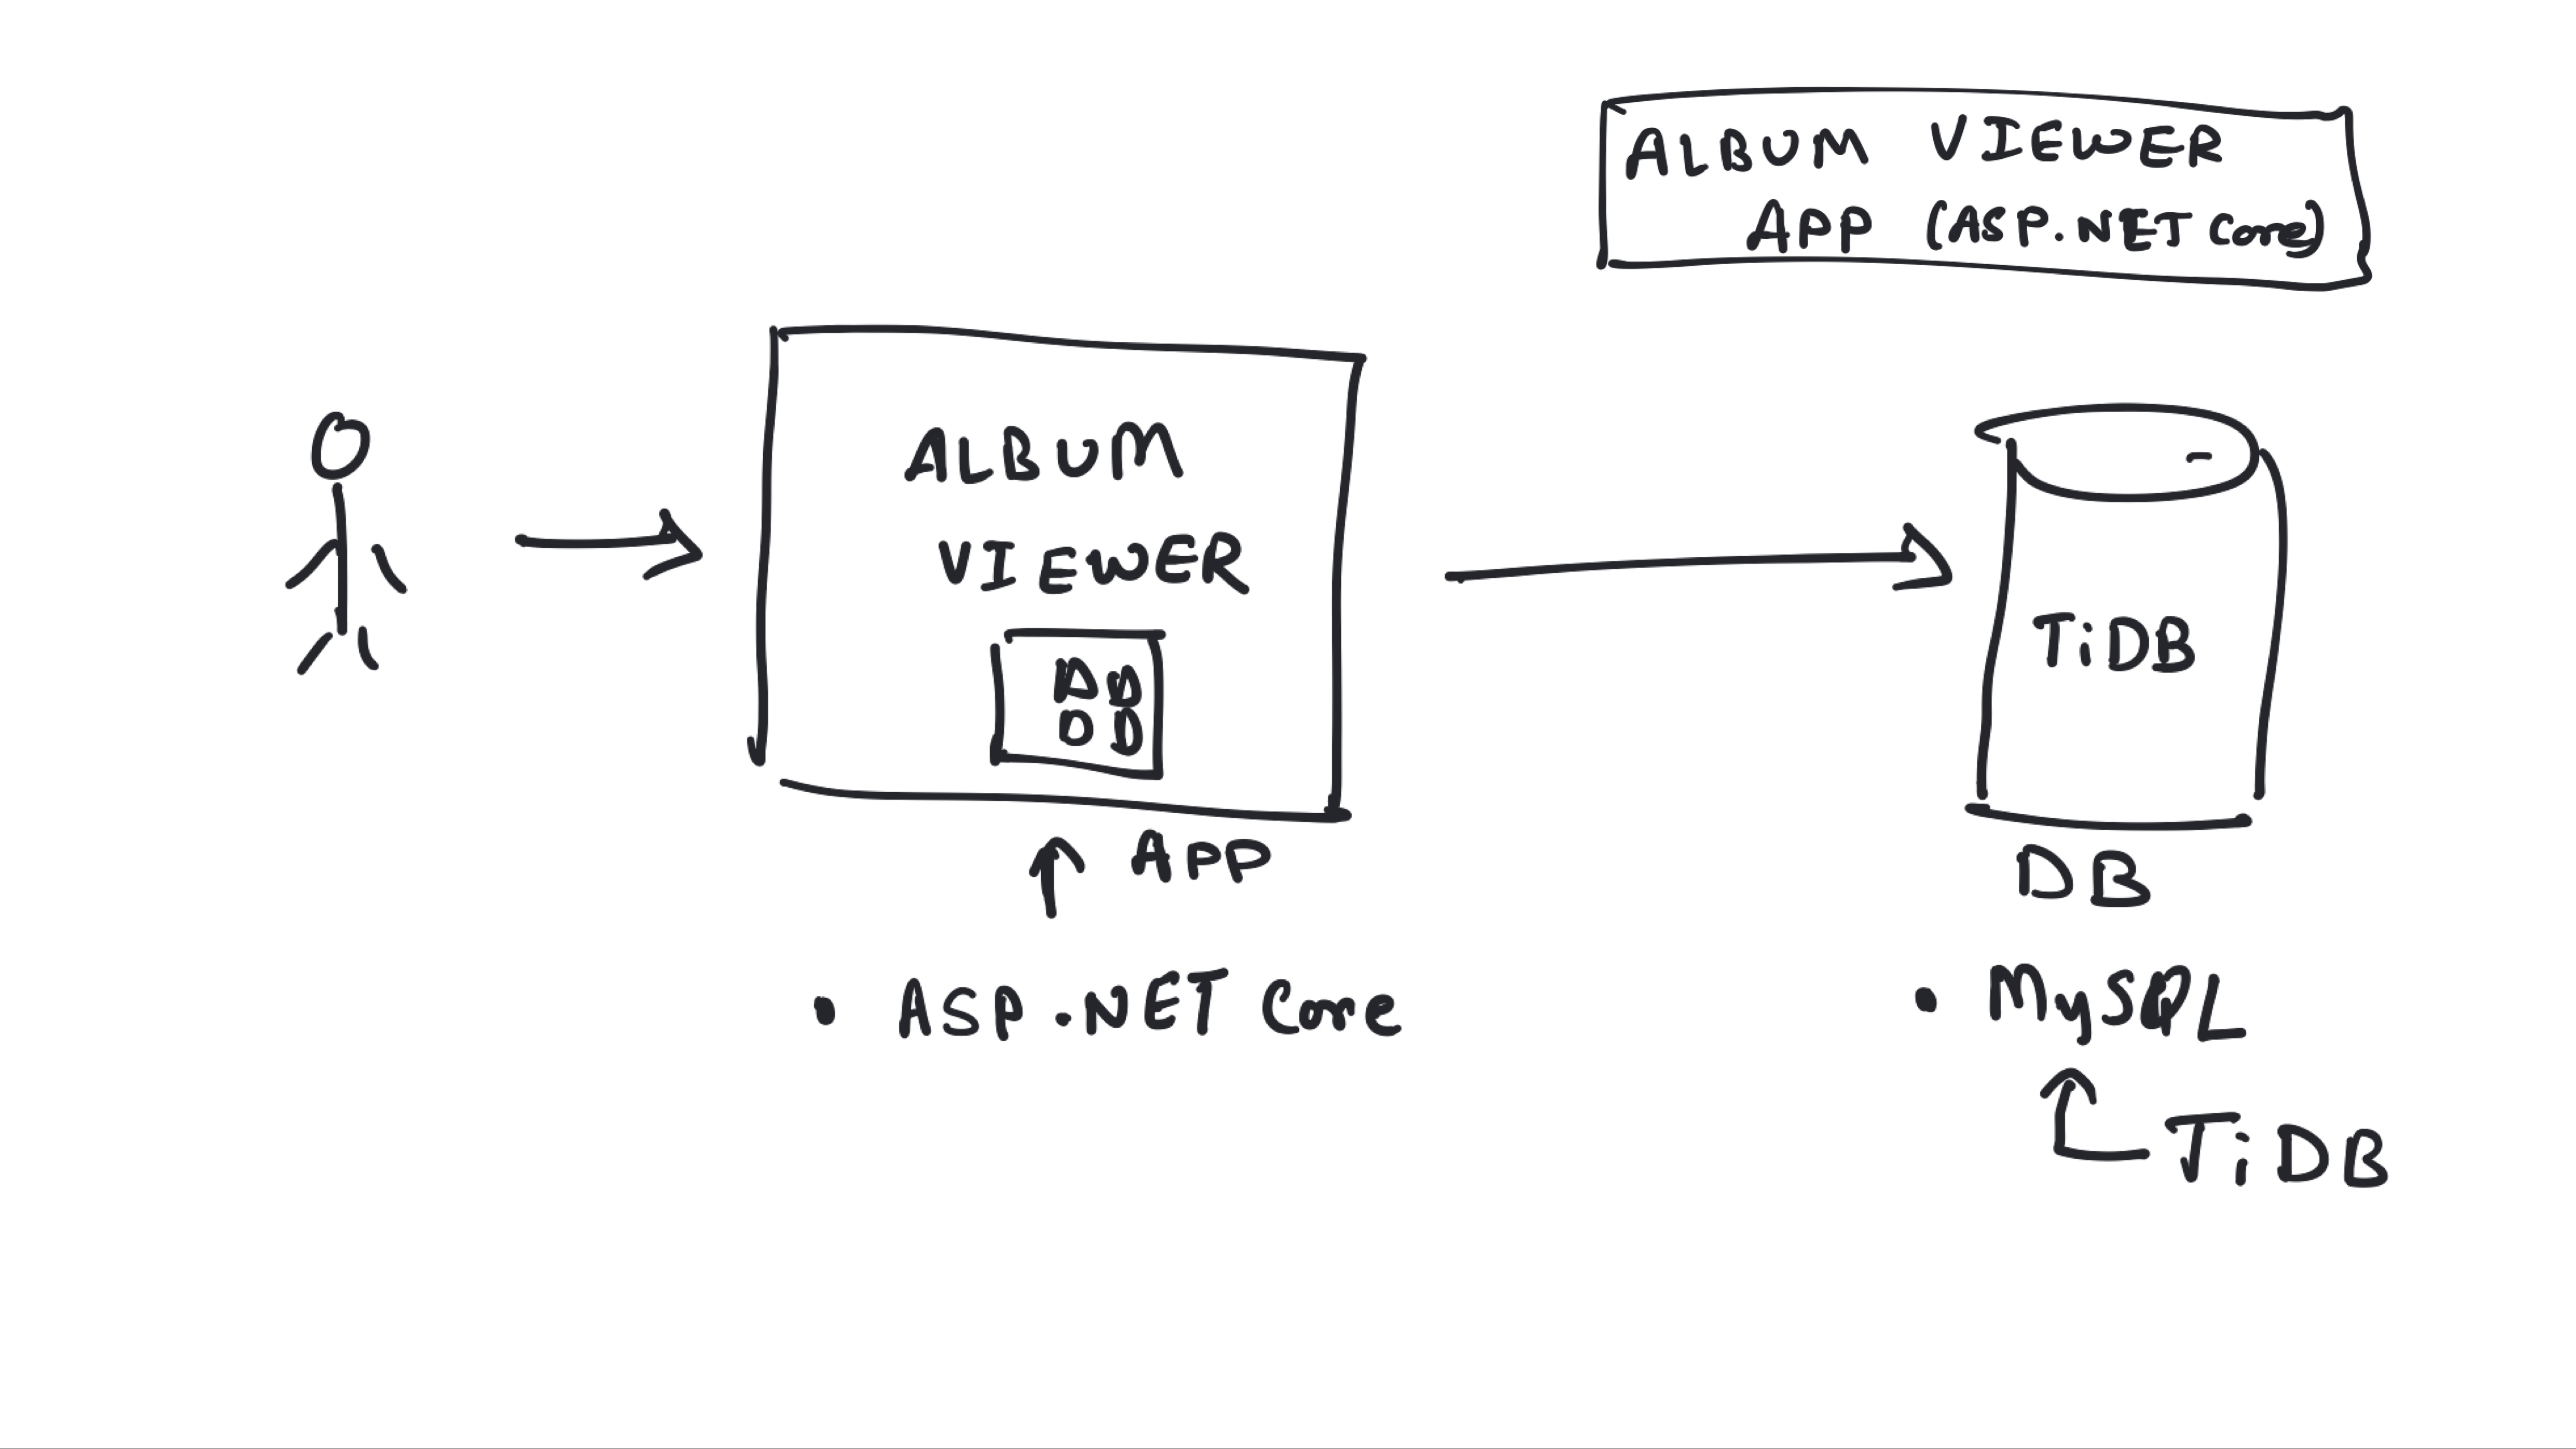 ALBUM VIEWER
APP (ASP.NET Core)
ALBUM
VIEWER
APP
• ASP.NET Core
TiDB
DB
• MySQL
TiDB